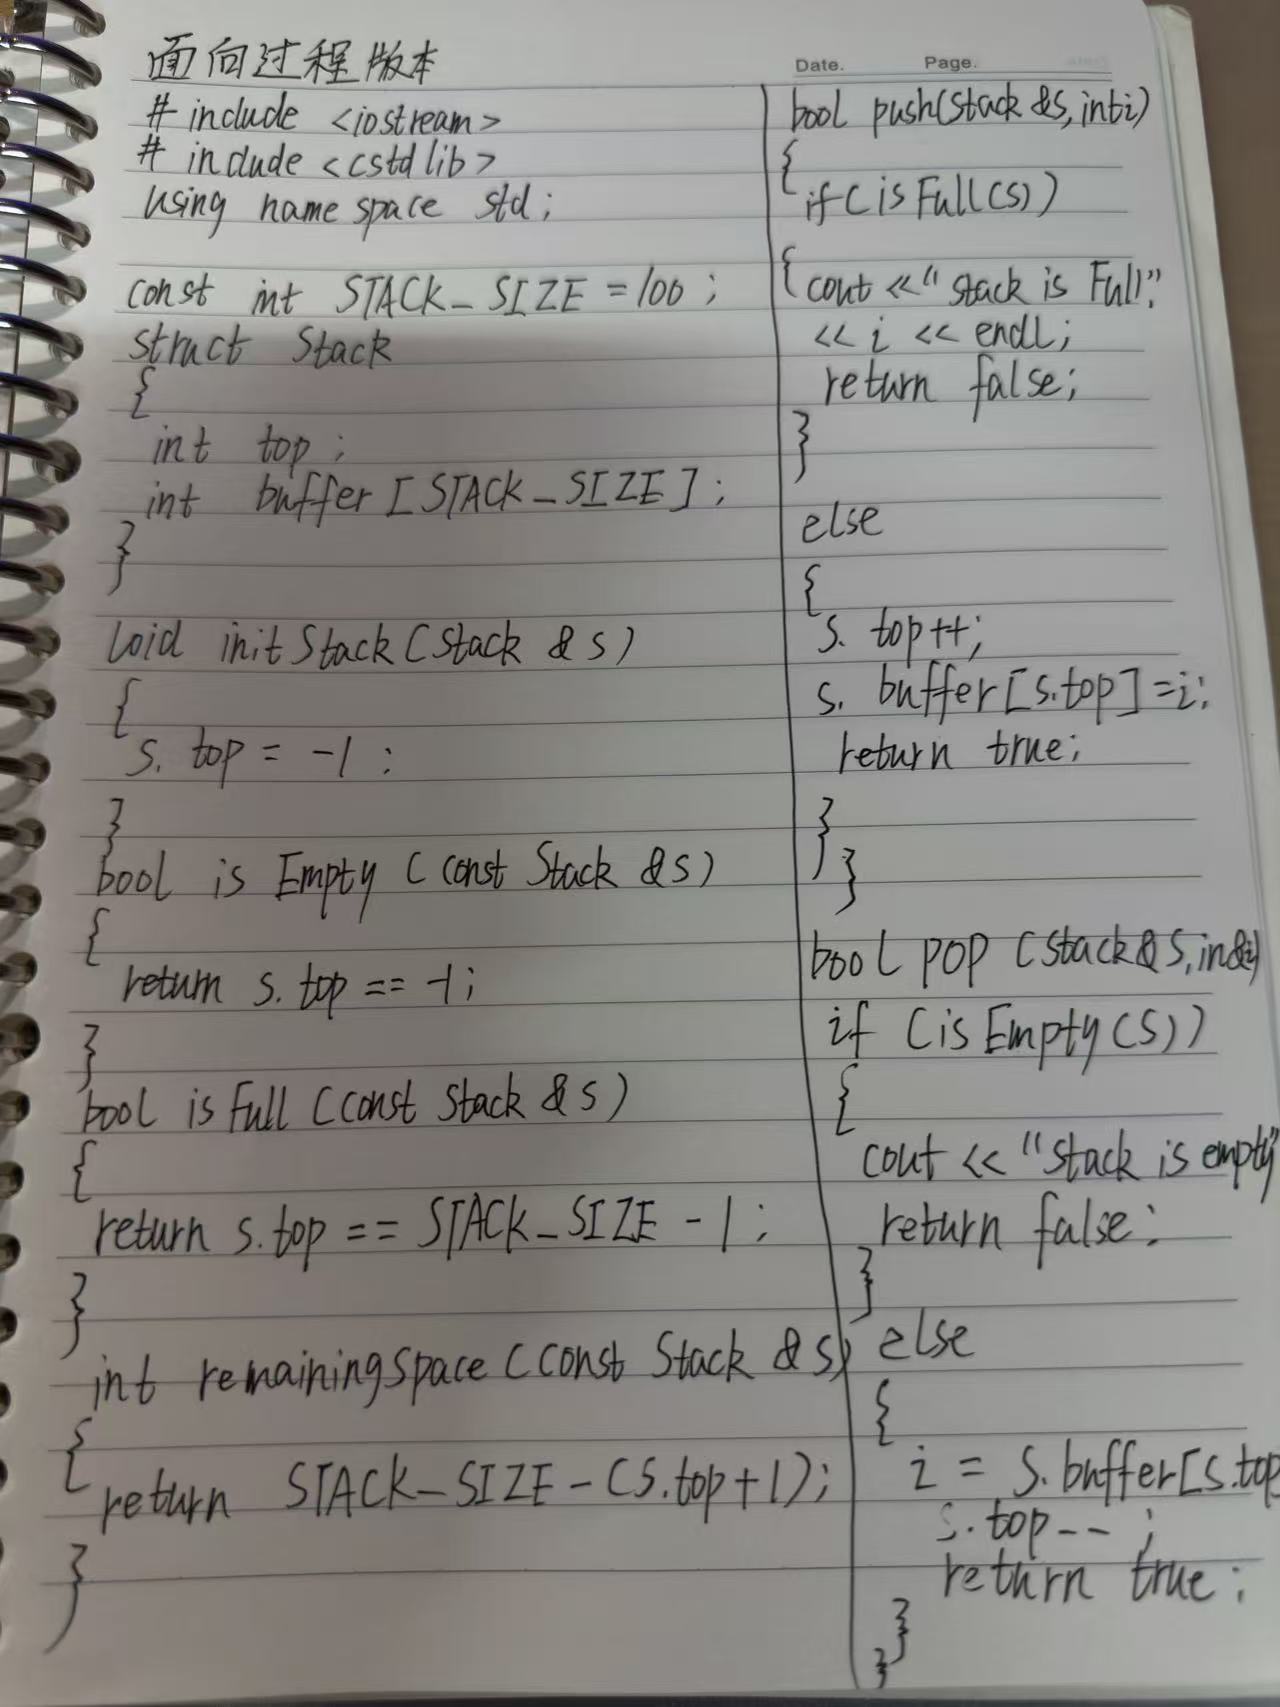 面向过程版本
# include <iostream>
# include <cstdlib>
using namespace std;
const int STACK_SIZE = 100;
struct Stack
{
int top;
int buffer [STACK_SIZE];
}
void initStack (Stack &s)
{
s. top = -1;
}
bool is Empty (const Stack &s)
{
return s. top == -1;
}
bool isFull (const Stack &s)
{
return s.top == STACK_SIZE - 1;
}
int remainingspace (const Stack &s)
{
return STACK_SIZE - (s.top+1);
}
Date. Page.
bool push(Stack &s, int i)
{
if (isFull(s))
{ cout << "Stack is Full."
<< i << endl;
return false;
}
else
{
s. top++;
s. buffer[s.top] = i;
return true;
}
}
bool pop (Stack& s, in&i)
if (isEmpty(s))
{
cout << "Stack is empty"
return false;
}
else
{
i = s.buffer[s.top
s.top--;
return true;
}
}